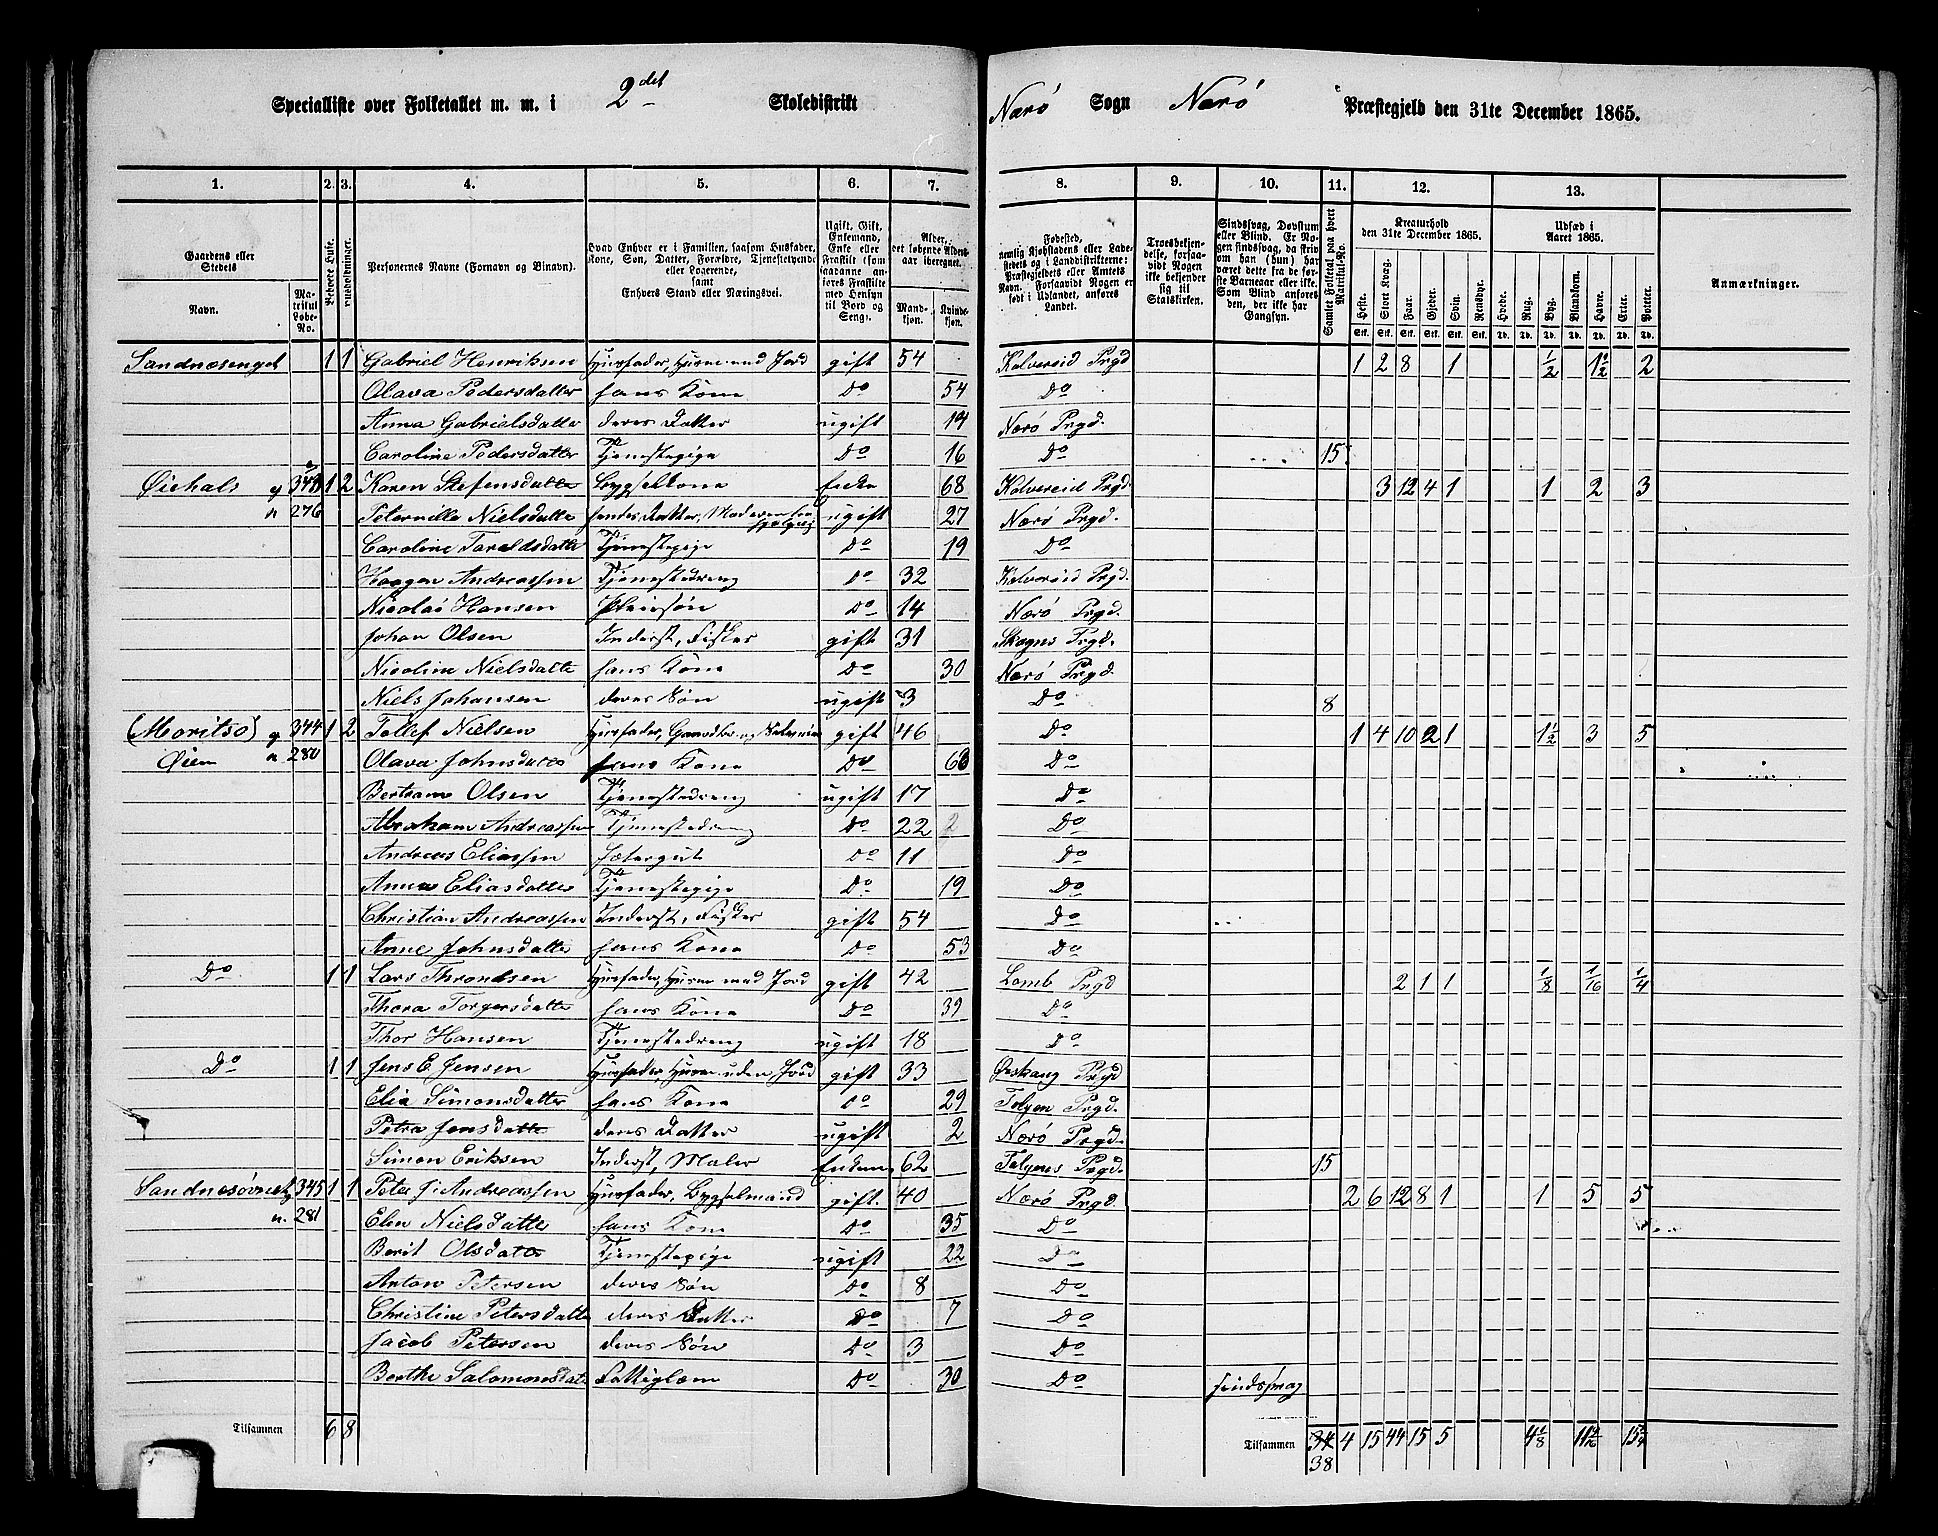 Specialliste over Folketallet m. m. i 2det Skoledistrikt Nærö Sogn Nærö Præstegjeld den 31te December 1865.
1. 2. 3. 4. 5. 6. 7. 8. 9. 10. 11. 12. 13.
Gaardens eller Stedets
Navn. Matrikul Løbe-No.
Beboede Huse.
Huusholdninger.
Personernes Navne (Fornavn og Binavn).
Hvad Enhver er i Familien, saasom Husfader, Kone, Søn, Datter, Forældre, Tjenestetyende eller Logerende, samt Enhvers Stand eller Næringsvei.
Ugift, Gift, Enkemand, Enke eller Fraskilt (som saadanne anføres Fraskilte med Hensyn til Bord og Seng).
Alder, det løbende Alders-aar iberegnet.
Mandkjøn. Kvindekjøn.
Fødested, nemlig Kjøbstadens eller Ladestedets og i Landdistrikterne: Præstegjeldets eller Amtets Navn. Forsaavidt Nogen er født i Udlandet, anføres Landet.
Troesbekjendelse, forsaavidt Nogen ikke bekjender sig til Statskirken.
Sindssvag, Døvstum eller Blind. Er Nogen sindssvag, da skrives om han (hun) har været dette fra de første Barneaar eller ikke. Som Blind anføres den, der ikke har Gangsyn.
Samlet Folketal paa hvert Matrikul-No.
Kreaturhold den 31te December 1865.
Heste. Stort Kvæg. Faar. Gjeder. Svin. Rensdyr.
Udsæd i Aaret 1865.
Hvede. Rug. Byg. Blandkorn. Havre. Erter. Poteter.
Anmærkninger.
Sandnæsenget 1 1 Gabriel Henriksen Husfader, Husm. med Jord gift 54 Kolvereid Prgd 1 2 8 1 1/2 1 1/2 2
Olava Pedersdatter hans Kone Do 54 Do
Anna Gabrielsdatter deres Datter ugift 14 Nærö Prgd.
Caroline Pedersdatter Tjenestepige Do 16 Do 15
Øiehals g 343 1 2 Karen Stefensdatter Bygselkone Enke 68 Kolvereid Prgd 3 12 4 1 1 2 3
n 276 Peternille Nielsdatter hendes Datter, ugift 27 Nærö Prgd.
Caroline Taraldsdatter Tjenestepige Do 19 Do
Haagen Andreassen Tjenestedreng Do 32 Kolvereid Prgd.
Nicolai Hansen Pleiesøn Do 14 Nærö Prgd.
Johan Olsen Inderst, Fisker gift 31 Skogns Prgd.
Nicoline Nielsdatter hans Kone Do 30 Nærö Prgd.
Niels Johansen deres Søn ugift 3 Do 8
(Moritsø) g 344 1 2 Tollef Nielsen Husfader, gift 46 Do 1 4 10 2 1 1 1/2 3 5
Øien n 280 Olava Johnsdatter hans Kone Do 63 Do
Bertram Olsen Tjenestedreng ugift 17 Do
Abraham Andreassen Tjenestedreng Do 22 Do
Andreas Eliassen Gjætergut Do 11 Do
Anna Eliasdatter Tjenestepige Do 19 Do
Christian Andreassen Inderst, Fisker gift 54 Do
Anne Johnsdatter hans Kone Do 53 Do
Do 1 1 Lars Throndsen Husfader, Husm. med Jord gift 42 Lomb Prgd 2 1 1 1/8 1/16 1/4
Thora Torgersdatter hans Kone Do 39 Do
Thor Hansen Tjenestedreng ugift 18 Do
Do 1 1 Jens E Jensen Husfader, Husm. uden Jord gift 33 Ørskoug Prgd
Elia Simonsdatter hans Kone Do 29 Tolgen Prgd.
Petra Jensdatter deres Datter ugift 2 Nærö Prgd.
Simon Eriksen Inderst, Maler Enkem. 62 Tolgens Prgd. 15
Sandnæsøvne g 345 1 1 Peter J: Andreassen Husfader, Bygselmand gift. 40 Nærö Prgd. 2 6 12 8 1 1 5 5
n. 281 Elen Nielsdatter hans Kone Do 35 Do
Berit Olsdatter Tjenestepige ugift 22 Do
Anton Petersen deres Søn Do 8 Do
Christine Petersdatter deres Datter Do 7 Do
Jacob Petersen deres Søn Do 3 Do
Berthe Salomonsdatter Fattiglem Do 30 Do sindssvag
Tilsammen 6 8 Tilsammen 34 4 15 44 15 5 4 1/8
38